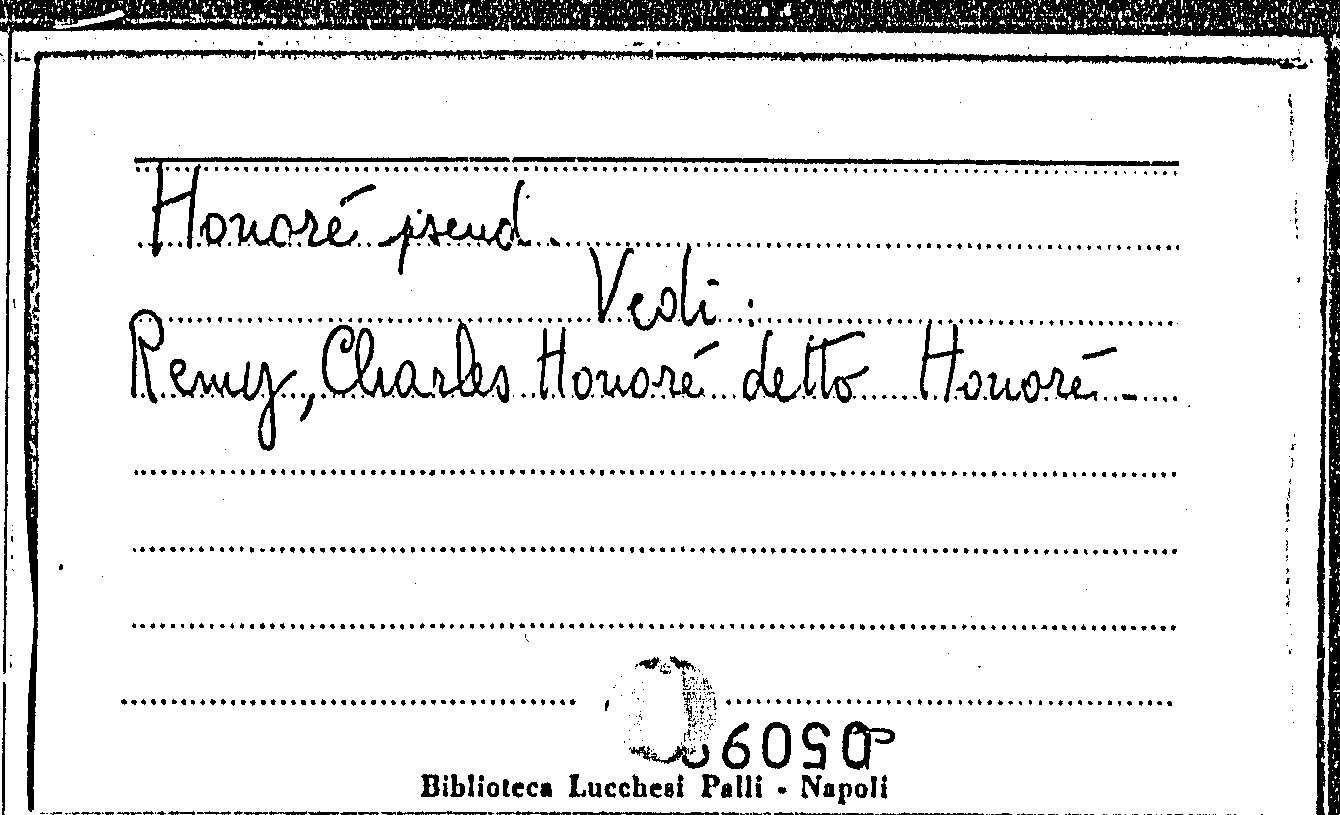 Honoré pseud.
Vedi:
Remy, Charles Honoré detto Honoré -
Biblioteca Lucchesi Palli - Napoli